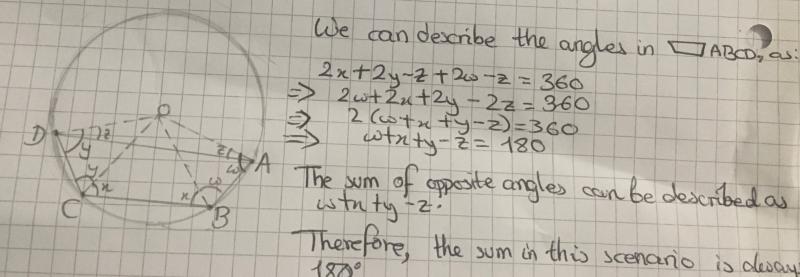 We can describe the angles in ▱ABCD, as:
2x+2y-z+2ω-z=360
⇒ 2ω+2x+2y-2z=360
⇒ 2(ω+x+y-z)=360
⇒ ω+x+y-z=180
The sum of opposite angles can be described as
ω+x+y-z.
Therefore, the sum in this scenario is always
180°
O
D
z
y
z
A
ω
y
x
ω
x
C
B